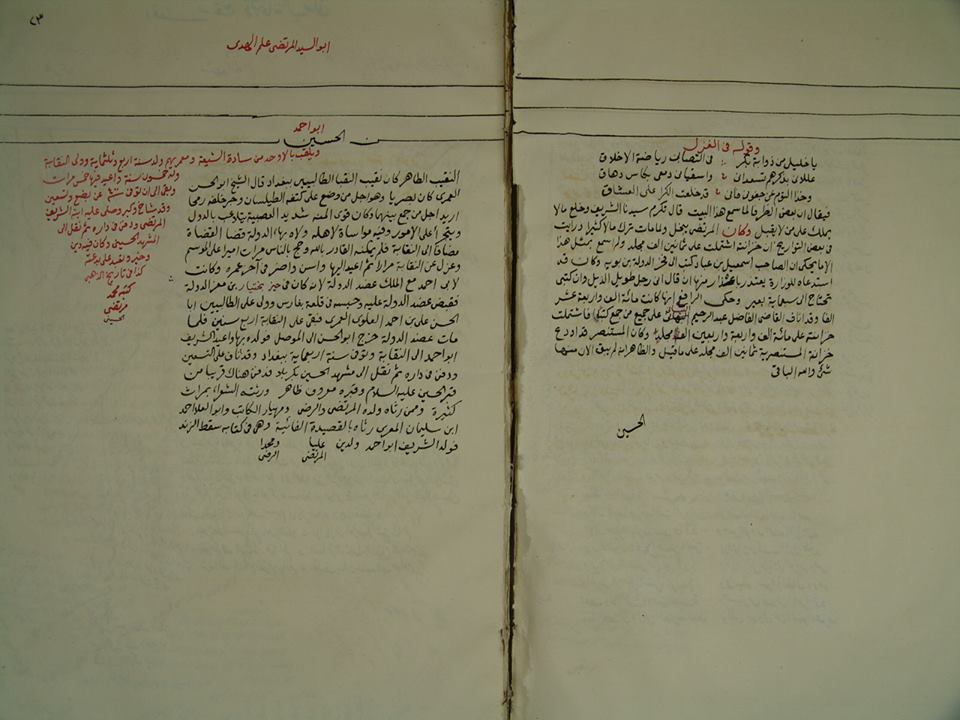 وقوله في الغزل
يا خليلي من ذوابة بكر في التصابي رياضة الاخلاق
عللاني بذكرهم تسعداني واسقياني دمعي بكاس دهاق
وخذا النوم من جفوني فاني قد خلعت الكرا على العشاق
فيقال ان بعض الظرفا لما سمع هذا البيت قال تكرم سيدنا الشريف وخلع مالا
يملك على من لا يقبل وكان المرتضى يبخل ولما مات ترك مالا كثيرا ورايت
في بعض التواريخ ان خزانته اشتملت على ثمانين الف مجلد ولم اسمع بمثل هذا
الا ما يحكى ان الصاحب اسمعيل بن عباد كتب الى فخر الدولة بن بويه وكان قد
استدعاه للوزارة يعتذر باعذار منها ان قال اني رجل طويل الذيل وان كتبي
تحتاج الى سبعماية بعير وحكى الرافعي انها كانت مائة الف واربعة عشر
الفا وقد اناف القاضي الفاضل عبد الرحيم على جميع من جمع كتبا فاشتملت
خزانته على مائة الف واربعة واربعين الف مجلد وكان المستنصر قد اودع
خزانة المستنصرية ثمانين الف مجلد على ما قيل والظاهر انه لم يبق الان منها
شئ والله الباقي
الحسين
٢٣
ابو السيد المرتضى علم الهدى
ابو احمد
الحسين بن
ويلقب بالاوحد من سادة الشيعة ولد سنة اربع وثلثماية وولي النقابة
وله خمسون سنة واعيد فيها خمس مرات
الى ان توفي عن بضع وتسعين
وقد شاخ وكبر وصلى عليه ابنه الشريف
المرتضى ودفن في داره ثم نقل الى
المشهد الحسيني وكان فيه دين
وخير
كذا في تاريخ الذهبي
كتبه محمد
مرتضى
الحسيني
النقيب الطاهر كان نقيب النقبا الطالبيين ببغداد قال الشيخ ابو الحسن
العمري كان بصريا وهو اجل من وضع على كتفه الطيلسان وجر خلفه رمح
اريد اجل من جمع بينهما وكان قوي المنه شديد العصبية يتلاعب بالدول
ويتجرا على الامور وفيه مواساة لاهله ولاه بهاء الدولة قضا القضاة
مضافا الى النقابة فلم يمكنه القادر بالله وحج بالناس مرات اميرا على الموسم
وعزل عن النقابة مرارا ثم اعيد اليها واسن واضر في آخر عمره وكانت
لابي احمد مع الملك عضد الدولة لانه كان في حيز بختيار بن معز الدولة
فقبض عضد الدولة عليه وحبسه في قلعة بفارس وولى على الطالبيين ابا
الحسن علي بن احمد العلوي العمري فبقي على النقابة اربع سنين فلما
مات عضد الدولة خرج ابو الحسن الى الموصل فولده بها واعيد الشريف
ابو احمد الى النقابة وتوفي سنة اربعماية ببغداد وقد اناف على التسعين
ودفن في داره ثم نقل الى مشهد الحسين بكربلاء فدفن هناك قريبا من
قبر الحسين عليه السلام وقبره معروف ظاهر ورثته الشعراء بمراث
كثيرة وممن رثاه ولده المرتضى والرضي ومهيار الكاتب وابو العلا احمد
ابن سليمان المعري رثاه بالقصيدة الفائية وهي في كتابه سقط الزند
فولد الشريف ابو احمد ولدين عليا ومحمدا
المرتضى الرضي